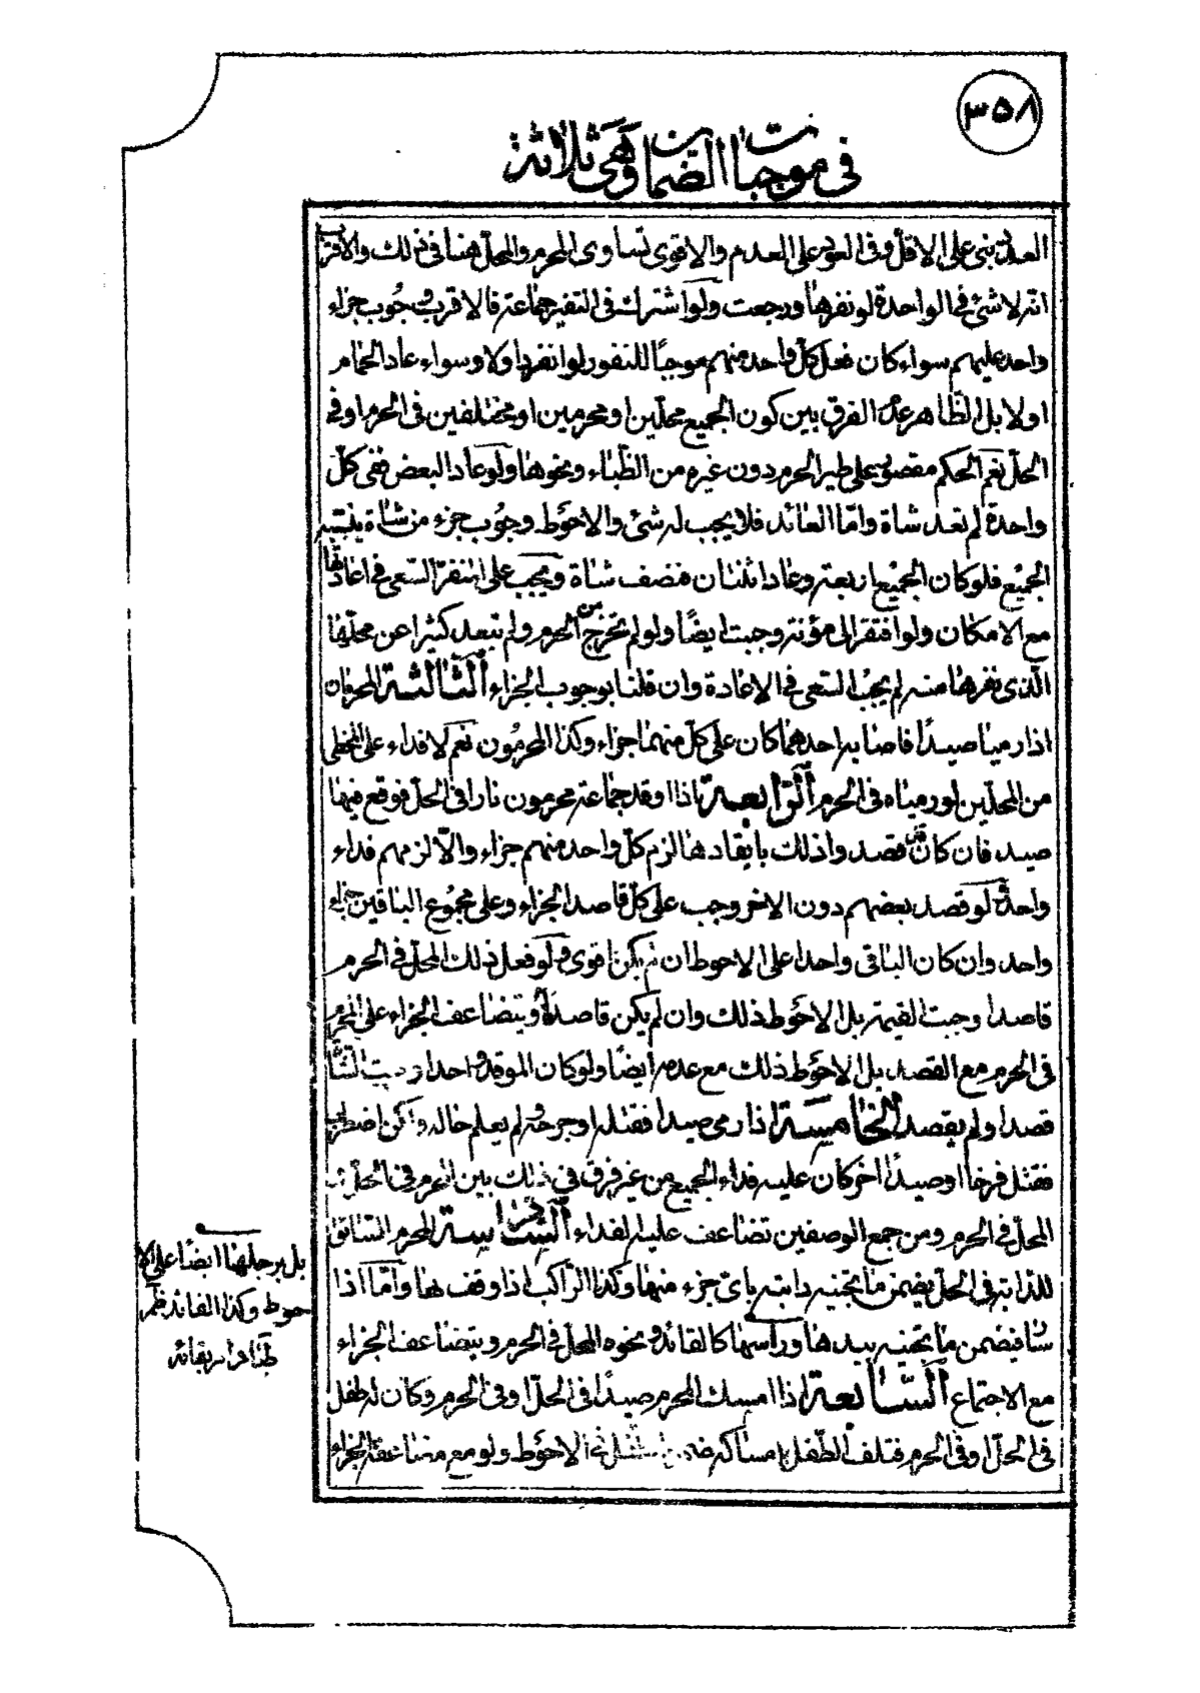 ٣٥٨
في موجبات الضمان وهي ثلاثة
العدد بنى على الاقل وفى العود على العدم والاقوى تساوى المحرم والمحل هنا فى ذلك والاقرب
انه لا شئ في الواحدة لو نفرها ورجعت ولو اشترك فى التنفير جماعة فالاقرب وجوب جزاء
واحد عليهم سواء كان فعل كل واحد منهم موجبًا للنفور لو انفرد اولا وسواء عاد الحمام
اولا بل الظاهر عدم الفرق بين كون الجميع محلين او محرمين او مختلفين فى الحرم او فى
الحل نعم الحكم مقصور على طير الحرم دون غيره من الظباء ونحوها ولو عاد البعض ففى كل
واحدة لم تعد شاة وامّا العائد فلا يجب له شئ والاحوط وجوب جزء من شاة بنسبة
الجميع فلو كان الجميع اربعة وعاد اثنتان فنصف شاة ويجب على المنفر السعى فى اعادتها
مع الامكان ولو افتقر الى مؤنة وجبت ايضًا ولو لم تخرج من الحرم ولم تبعد كثيرا عن محلها
الذى نفرها منه لم يجب السعى فى الاعادة وان قلنا بوجوب الجزاء الثالثة المحرمان
اذا رميا صيدًا فاصابه احدهما كان على كل منهما جزاء وكذا المحرمون نعم لا فداء على المخطى
من المحلين لو رمياه فى الحرم الرابعة اذا اوقد جماعة محرمون نارا فى الحل فوقع فيها
صيد فان كانوا قد قصدوا ذلك بايقادها لزم كل واحد منهم جزاء والا لزمهم فداء
واحد ولو قصد بعضهم دون الاخر وجب على كل قاصد الجزاء وعلى مجموع الباقين جزاء
واحد وان كان الباقى واحدا على الاحوط ان لم يكن اقوى ولو فعل ذلك المحل فى الحرم
قاصدا وجبت القيمة بل الاحوط ذلك وان لم يكن قاصدا ويتضاعف الجزاء على المحرم
فى الحرم مع القصد بل الاحوط ذلك مع عدمه ايضًا ولو كان الموقد واحدا وجبت الشاة
قصد او لم يقصد الخامسة اذا رمى صيدا فقتله او جرحه ولم يعلم حاله ولكن اضطرب
فقتل فرخا او صيدًا اخر كان عليه فداء الجميع من غير فرق فى ذلك بين المحرم فى الحل
المحل فى الحرم ومن جمع الوصفين تضاعف عليه الفداء السادسة المحرم السائق
للدابة فى الحل يضمن ما تجنيه دابته باى جزء منها وكذا الراكب اذا وقف بها وامّا اذا
سار فيضمن ما تجنيه بيدها وراسها كالقائد ونحوه المحل فى الحرم ويتضاعف الجزاء
مع الاجتماع السابعة اذا امسك المحرم صيدًا فى الحل او فى الحرم وكان له طفل
فى الحل او فى الحرم فتلف الطفل بامساكه الاحوط ولو مع مضاعفة الجزاء
بل برجلها ايضًا على الا
حوط وكذا القائد